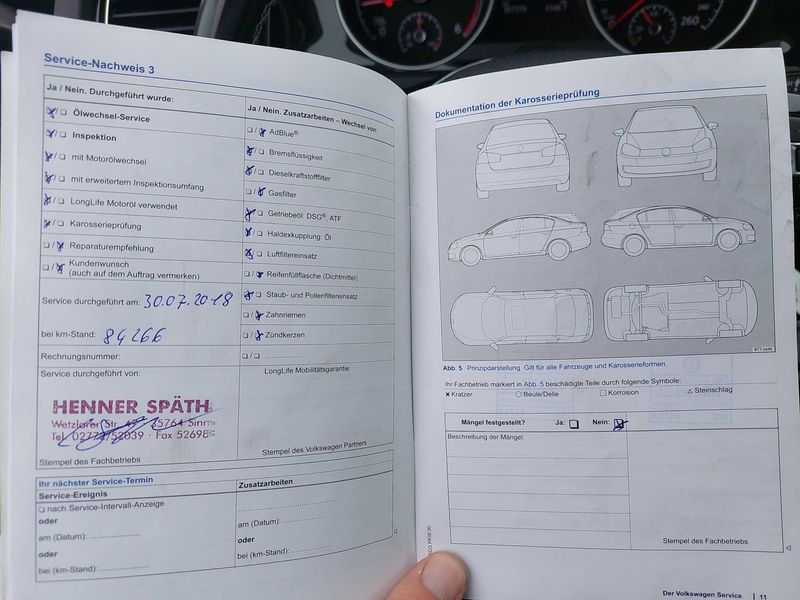 Service-Nachweis 3
Ja / Nein. Durchgeführt wurde:
☒/☐ Ölwechsel-Service
☒/☐ Inspektion
☒/☐ mit Motorölwechsel
☒/☐ mit erweitertem Inspektionsumfang
☒/☐ LongLife Motoröl verwendet
☒/☐ Karosserieprüfung
☐/☒ Reparaturempfehlung
☐/☒ Kundenwunsch
(auch auf dem Auftrag vermerken)
Service durchgeführt am: 30.07.2018
bei km-Stand: 84266
Rechnungsnummer:
Service durchgeführt von:
HENNER SPÄTH
Wetzlarer Str.
Fax 52698
Stempel des Fachbetriebs
Ja / Nein. Zusatzarbeiten – Wechsel von:
☐/☒ AdBlue®
☒/☐ Bremsflüssigkeit
☒/☐ Dieselkraftstofffilter
☐/☒ Gasfilter
☒/☐ Getriebeöl: DSG®, ATF
☒/☐ Haldexkupplung: Öl
☒/☐ Luftfiltereinsatz
☐/☒ Reifenfüllflasche (Dichtmittel)
☒/☐ Staub- und Pollenfiltereinsatz
☐/☒ Zahnriemen
☐/☒ Zündkerzen
☐/☐ ....................
LongLife Mobilitätsgarantie
Stempel des Volkswagen Partners
Ihr nächster Service-Termin
Service-Ereignis
☐ nach Service-Intervall-Anzeige
oder
am (Datum): ....................
oder
bei (km-Stand): ....................
Zusatzarbeiten
am (Datum): ....................
oder
bei (km-Stand): ....................
Dokumentation der Karosserieprüfung
Abb. 5 Prinzipdarstellung. Gilt für alle Fahrzeuge und Karosserieformen.
Ihr Fachbetrieb markiert in Abb. 5 beschädigte Teile durch folgende Symbole:
× Kratzer ○ Beule/Delle □ Korrosion △ Steinschlag
Mängel festgestellt? Ja: ☐ Nein: ☒
Beschreibung der Mängel:
Stempel des Fachbetriebs
Der Volkswagen Service | 11
6
260